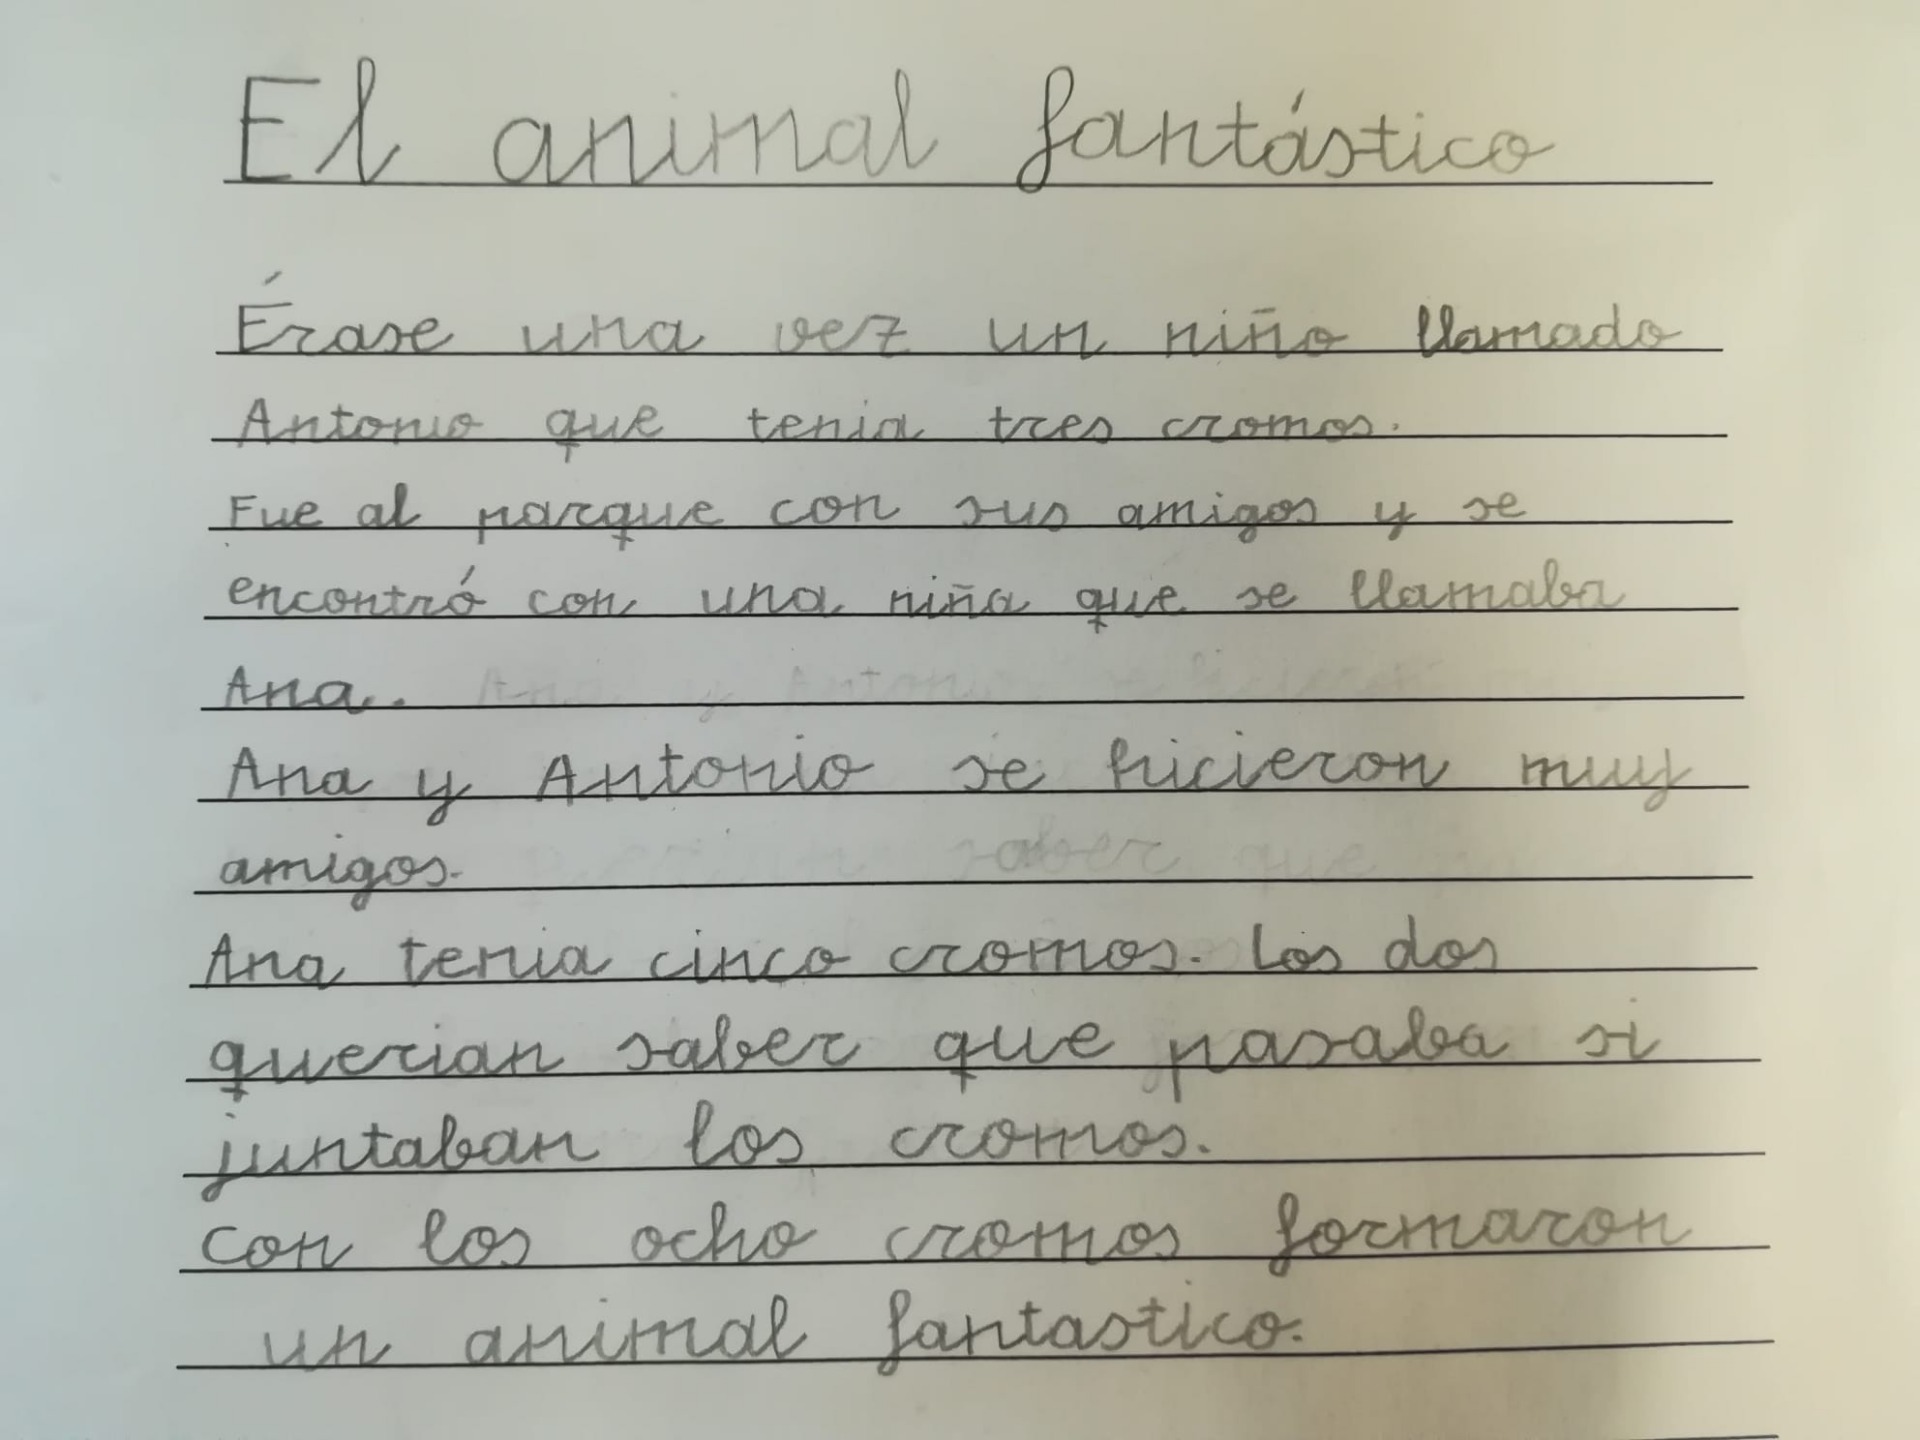 El animal fantástico
Érase una vez un niño llamado
Antonio que tenia tres cromos.
Fue al parque con sus amigos y se
encontró con una niña que se llamaba
Ana.
Ana y Antonio se hicieron muy
amigos.
Ana tenia cinco cromos. Los dos
querian saber que pasaba si
juntaban los cromos.
Con los ocho cromos formaron
un animal fantastico.